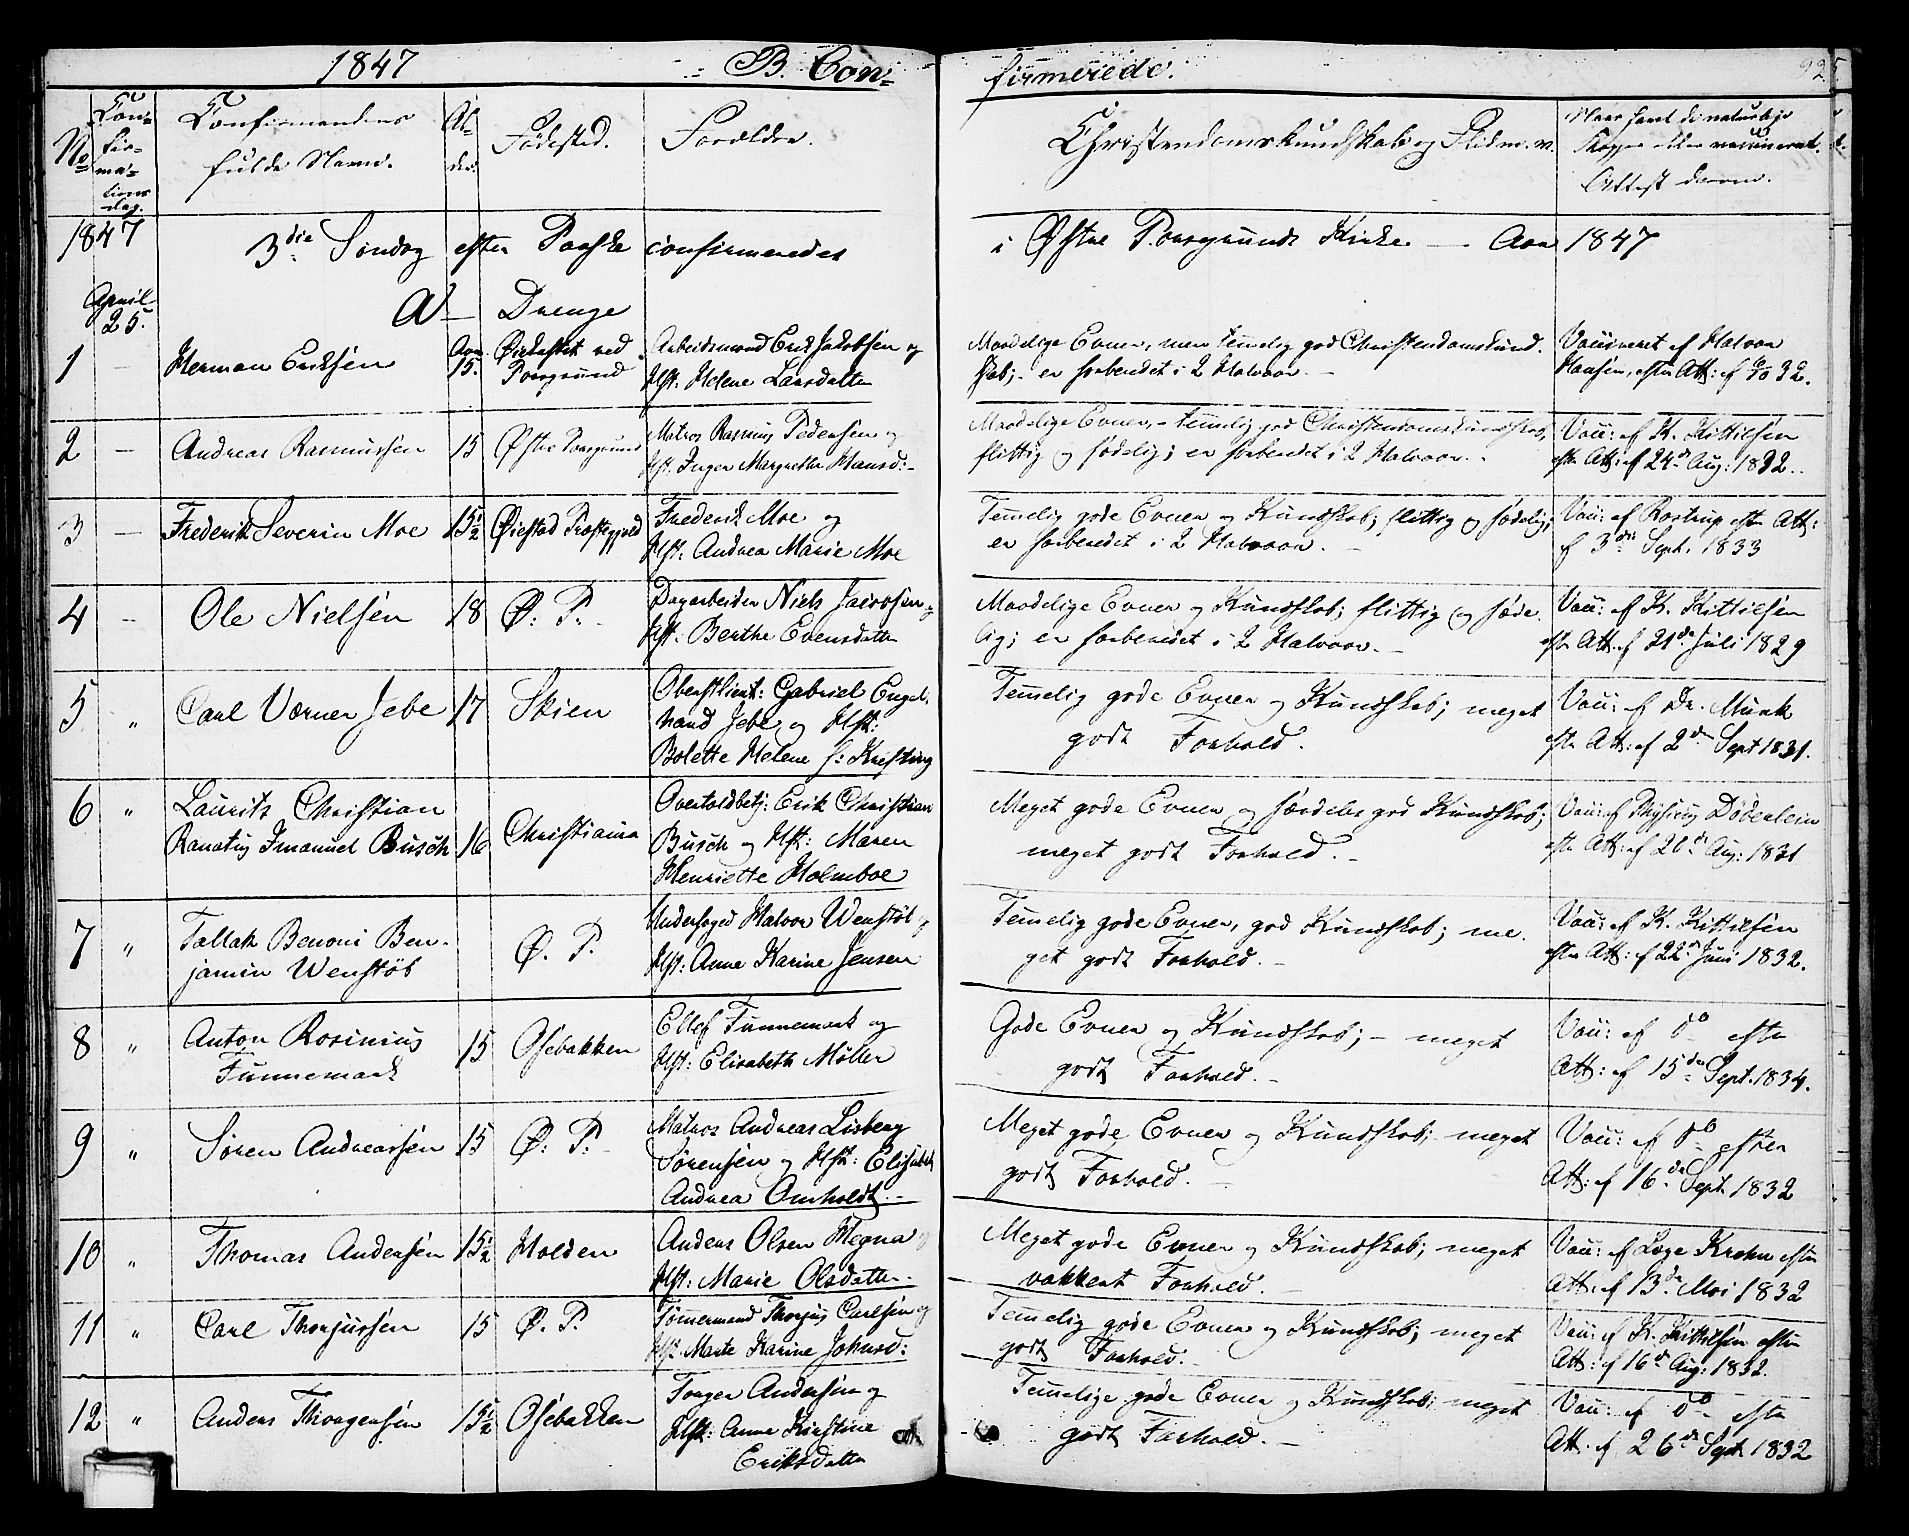 1847 B. Con-
firmerede.
No
Con-
fir-
ma-
tions
dag.
Confirmandens
fulde Navn.
Al-
der.
Fødested.
Forældre.
Christendomskundskab og Flid m. v.
Naar havt de naturlige
Kopper eller vaccineret.
Attest derom.
1847
3die Søndag efter Paaske confirmeredes
i Østre Porsgrunds Kirke. — Aar 1847
April
25.
A — Drenge
1 — Herman Eriksen
Aar
15.
ved
Porsgrund
Arbeidsmand Erik Jakobsen og
Hst: Helene Larsdatter
Maadelige Evner, men temmelig god Christendomskund-
skab; – er forberedet i 2 Halvaar. –
Vaccineret af Halvor
Hansen, efter Att: af 6/10 32.
2 — Andreas Rasmussen 15 Østre Porsgrund
Matros Rasmus Pedersen og
Hst: Inger Margrethe Hansd: –
Maadelige Evner, – temmelig god Christendomskundskab,
flittig og sædelig; er forberedet i 2 Halvaar. –
Vacc: af K. Kittilsen
efter Att: af 24de Aug: 1832.
3 — Frederik Severin Moe 15½ Øiestad Præstegjeld
Frederik Moe og
Hst: Andrea Marie Moe
Temmelig gode Evner og Kundskab; flittig og sædelig;
er forberedet i 2 Halvaar. –
Vacc: af Rostrup efter Att:
af 3die Sept. 1833
4 — Ole Nielsen 18 Ø: P: –
Dagarbeider Niels Jacobsen og
Hst: Berthe Evensdatter
Maadelige Evner og Kundskab; flittig og sæde-
lig; er forberedet i 2 Halvaar. –
Vacc: af K. Kittilsen
efter Att. af 21de Juli 1829
5 " Carl Værner Jebe 17 Skien
Oberstlieut: Gabriel Engel-
hard Jebe og Hst:
Bolette Helene f: Kiesting
Temmelig gode Evner og Kundskab; meget
godt Forhold.
Vacc: af Dr. Munk
efter Att: af 2de Sept 1831.
6 " Laurits Christian
Renatus Imanuel Busch 16 Christiania
Overtoldbetj: Erik Christian
Busch og Hst: Maren
Henriette Holmboe
Meget gode Evner og særdeles god Kundskab;
meget godt Forhold. –
Vacc: af Physicus Døderlein
efter Att: af 26de Aug: 1831
7 " Tallak Benoni Ben-
jamin Wenstøb
Ø. P.
Underfoged Halvor Wenstøb og
Hst: Anne Karine Jensen
Temmelig gode Evner, god Kundskab; me-
get godt Forhold. –
Vacc: af K. Kittilsen
efter Att: af 22de Juni 1832.
8 " Anton Rosinius
Funnemark
15 Osebakken
Ellef Funnemark og
Hst: Elisabeth Møller
Gode Evner og Kundskab; – meget
godt Forhold. –
Vacc: af do efter
Att: af 15de Sept. 1834.
9 " Søren Andreassen 15 Ø: P: –
Matros Andreas Lisberg
Sørensen og Hst: Elisabet
Andrea Omholdt. –
Meget gode Evner og Kundskab; meget
godt Forhold. –
Vacc: af do efter
Att: af 16de Sept. 1832
10 " Thomas Andersen 15½ Holden
Anders Olsen Hegna og
Hst: Marie Olsdatter.
Meget gode Evner og Kundskab; meget
vakkert Forhold. –
Vacc: af Læge Krohn efter
Att: af 13de Mai 1832
11 " Carl Thorjussen 15 Ø. P.
Tømmermand Thorjus Carlsen og
Hst: Marte Karine Johnsd:
Temmelig gode Evner og Kundskab; meget
godt Forhold. –
Vacc: af K. Kittilsen efter
Att: af 16de Aug: 1832.
12 " Anders Thorgersen 15½ Osebakken
Torger Andersen og
Hst: Anne Kirstine
Eriksdatter
Temmelige gode Evner og Kundskab; meget
godt Forhold. –
Vacc: af do efter
Att. af 26de Sept. 1832